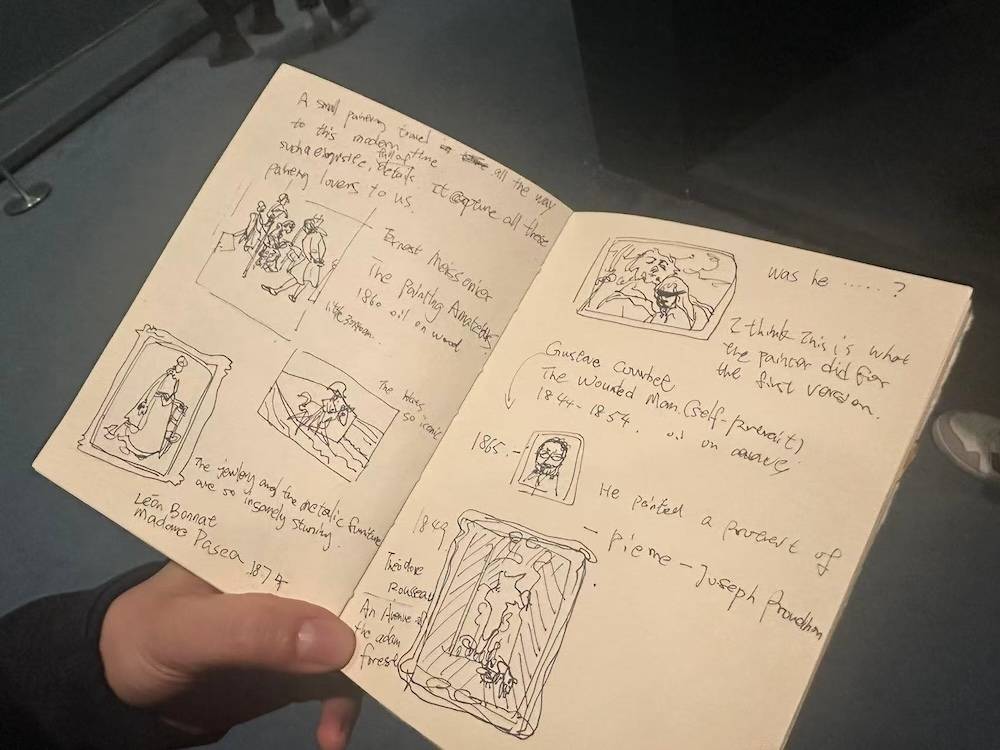 A small painting travel all the way
to this modern time
such exquisite, full of details. It capture all these
painting lovers to us.
Ernest Meissonier
The Painting Amateurs
1860 oil on wood
The blues,
so iconic
The jewlery and the metalic furniture
are so insanely stunning.
Léon Bonnat
Madame Pasca 1874
was he ......?
I think this is what
the painter did for
the first version.
Gustave Courbet
The Wounded Man. (self-portrait)
1844-1854. oil on
1865.-
He painted a
of
- Pierre-Joseph Proudhon
1849.
Theodore
Rousseau
An Avenue of
the
forest